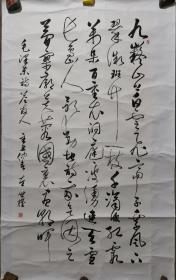 九嶷山上白云飞帝子乘风下
翠微斑竹一枝千滴泪红霞
万朵百重衣洞庭波涌连天雪
长岛人歌动地诗我欲因之
梦寥廓芙蓉国里尽朝晖
毛泽东答友人